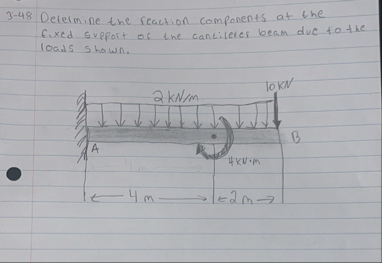 3-48 Determine the reaction components at the
fixed support of the cantilever beam due to the
loads shown.
10 kN
2 kN/m
A
B
4 kN·m
4 m
2 m